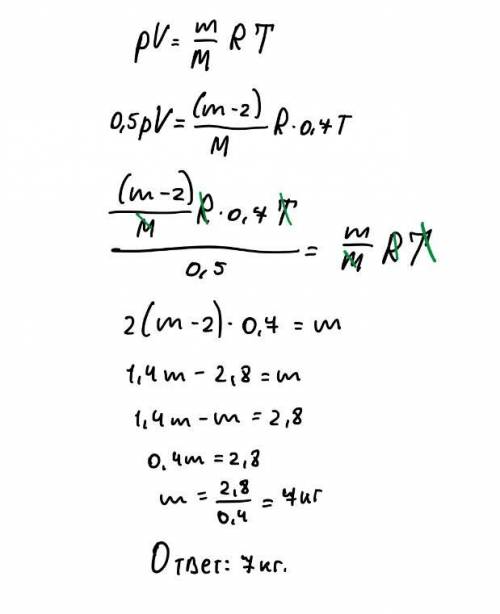 pV = m/M RT
0,5pV = (m-2)/M R · 0,7T
((m-2)/M R · 0,7 T)/0,5 = m/M RT
2(m-2) · 0,7 = m
1,4m - 2,8 = m
1,4m - m = 2,8
0,4m = 2,8
m = 2,8/0,4 = 7кг
Ответ: 7кг.